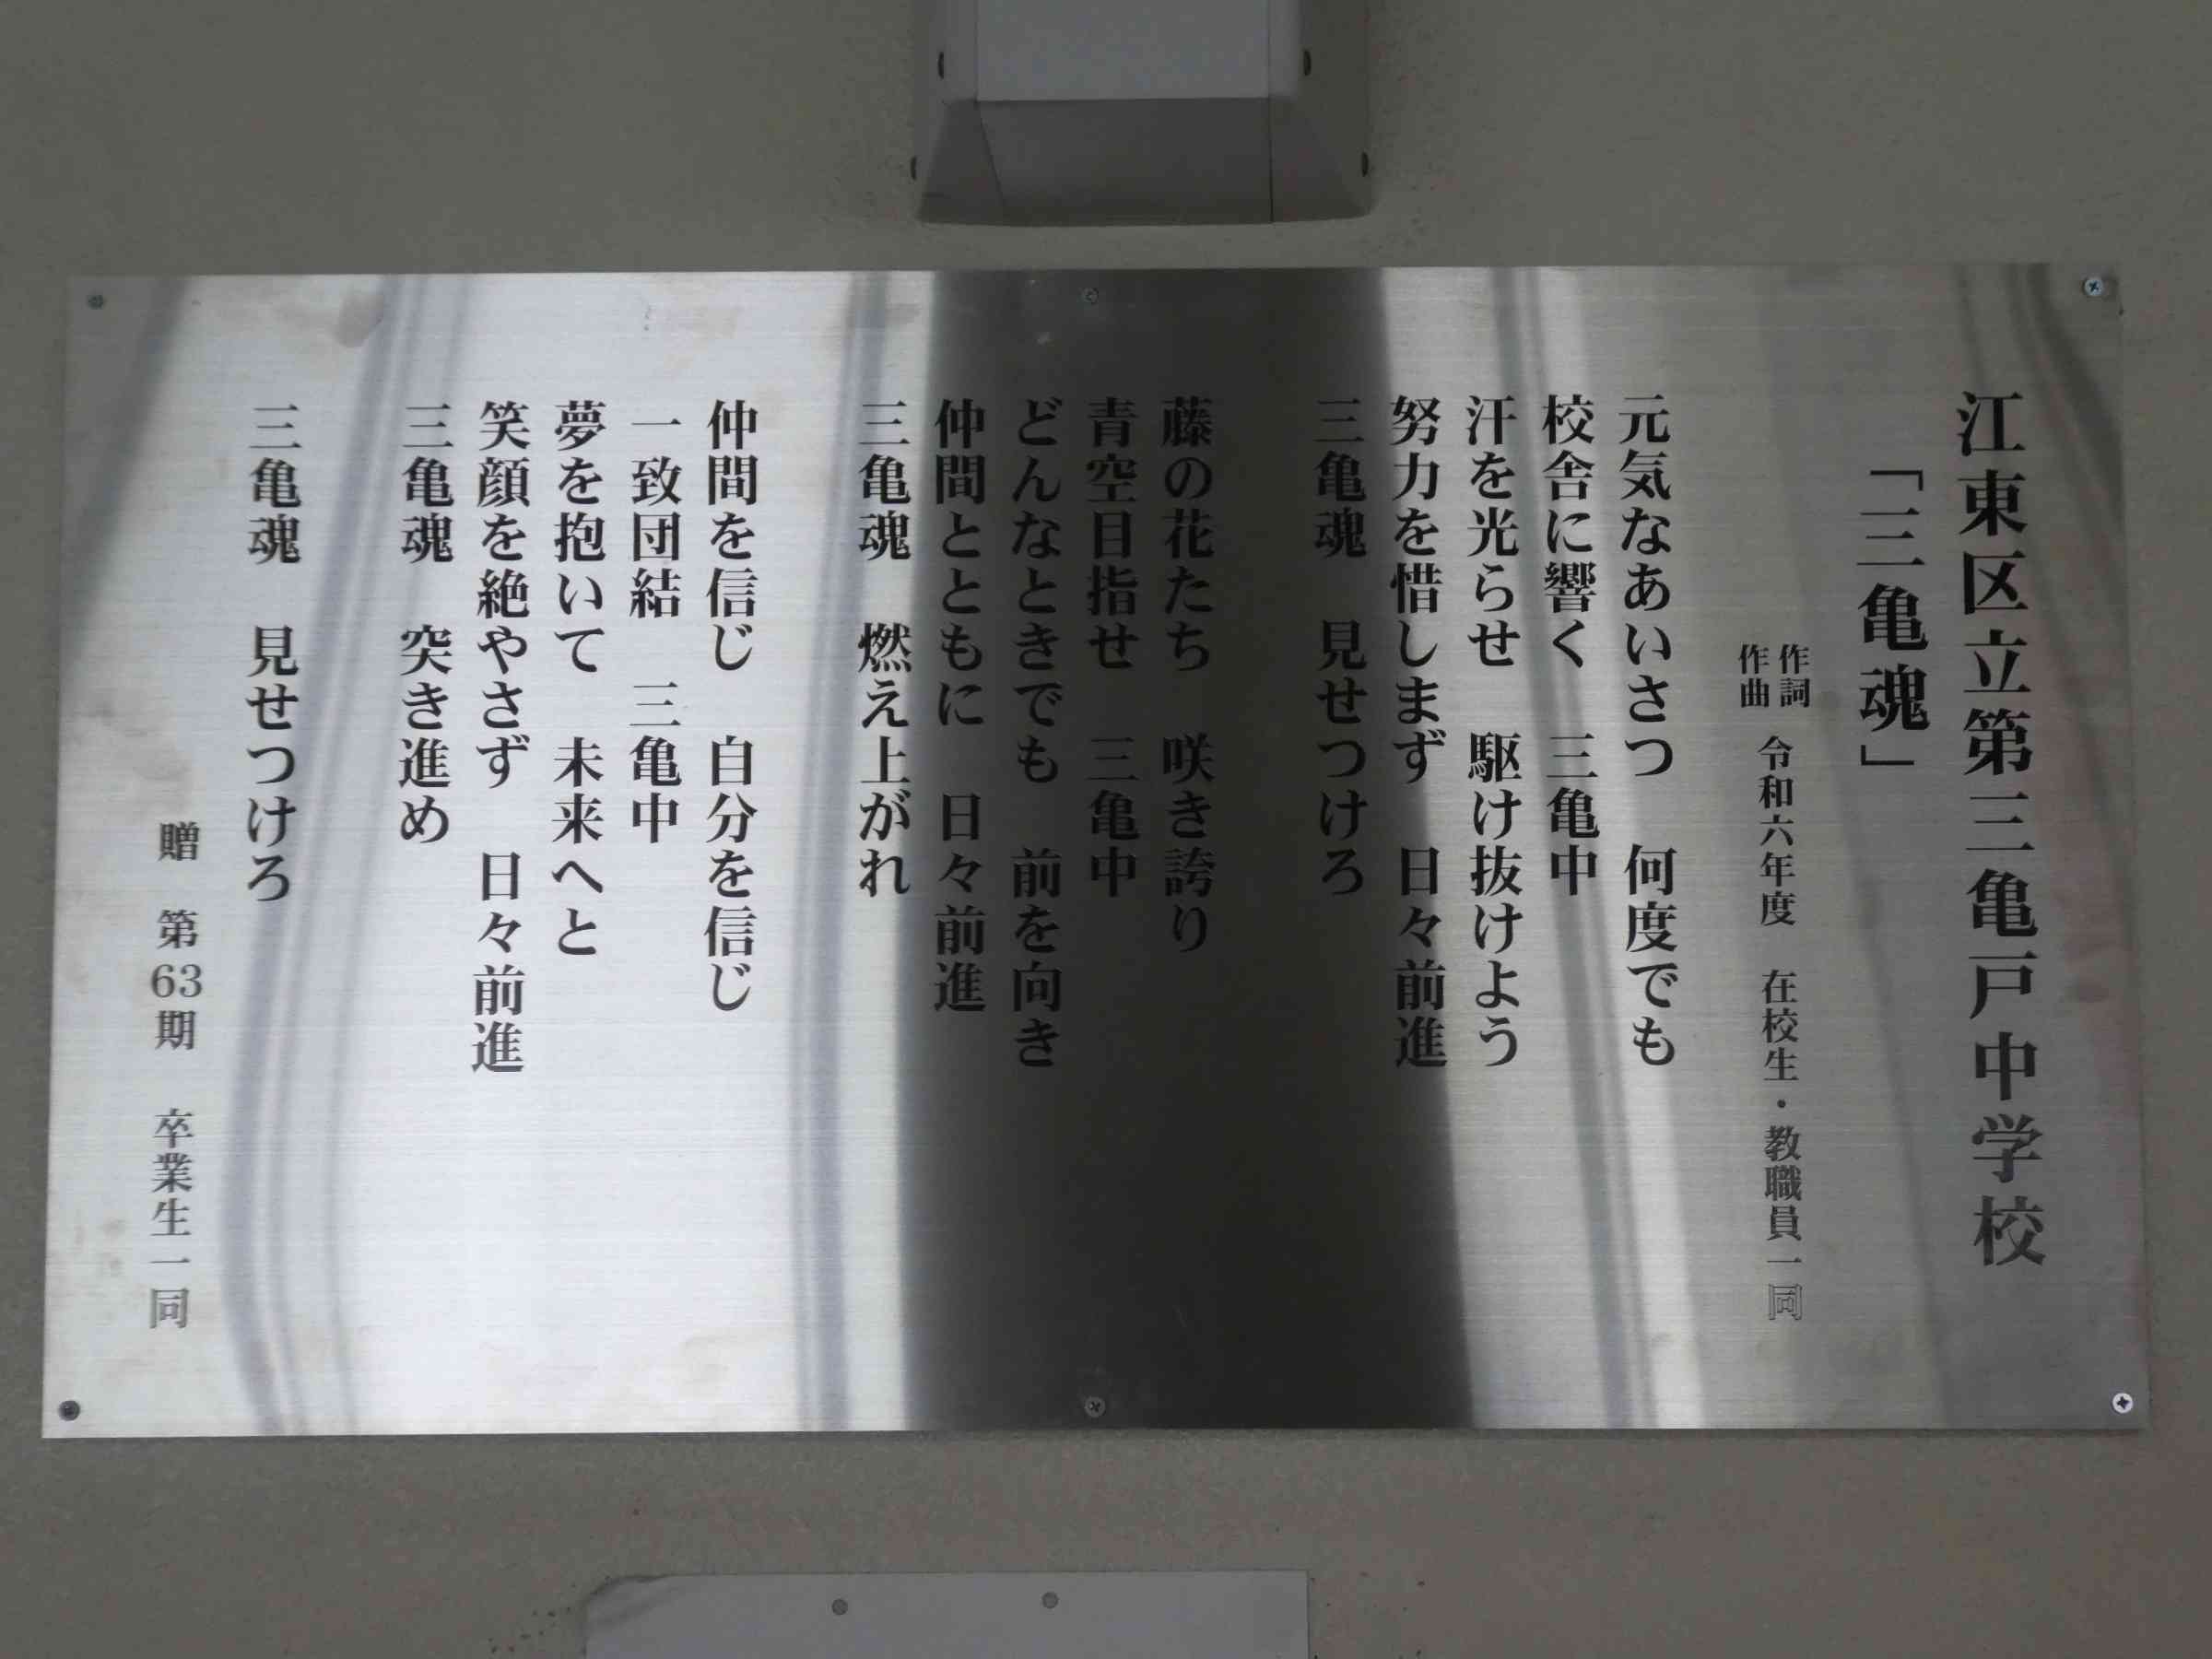 江東区立第三亀戸中学校
「三亀魂」
作詞
作曲
令和六年度　在校生・教職員一同
元気なあいさつ　何度でも
校舎に響く　三亀中
汗を光らせ　駆け抜けよう
努力を惜しまず　日々前進
三亀魂　見せつけろ
藤の花たち　咲き誇り
青空目指せ　三亀中
どんなときでも　前を向き
仲間とともに　日々前進
三亀魂　燃え上がれ
仲間を信じ　自分を信じ
一致団結　三亀中
夢を抱いて　未来へと
笑顔を絶やさず　日々前進
三亀魂　突き進め
三亀魂　見せつけろ
贈　第63期　卒業生一同